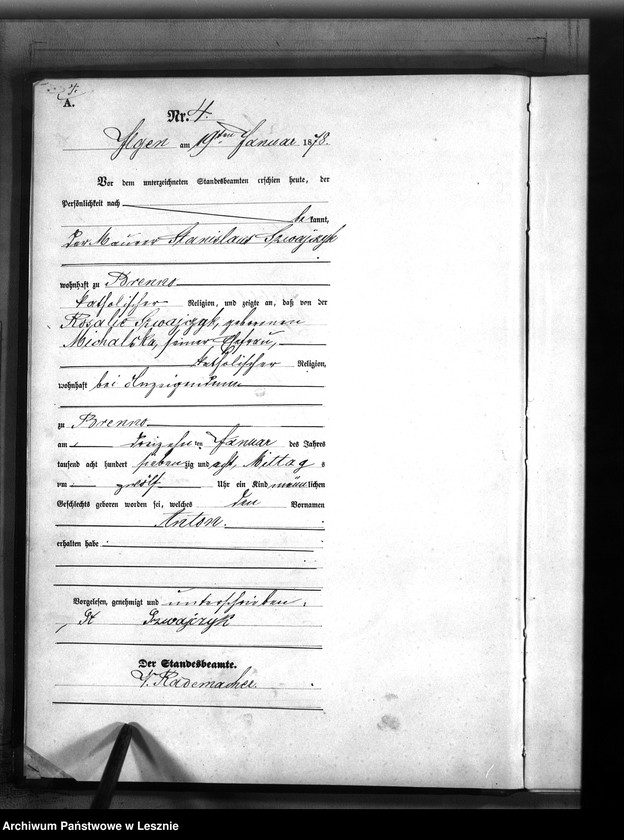 4.
A.
Nr. 4.
Ilgen am 19ten Januar 1878.
Vor dem unterzeichneten Standesbeamten erschien heute, der
Persönlichkeit nach
be kannt,
der Maurer Stanislaus Szwajczyk
wohnhaft zu Brenno
katholischer Religion, und zeigte an, daß von der
Rosalie Szwajczyk, geborenen
Michalska, seiner Ehefrau,
katholischer Religion,
wohnhaft bei Anzeigendem
zu Brenno
am dreizehnten Januar des Jahres
tausend acht hundert siebenzig und acht, Mittags
um zwölf Uhr ein Kind männlichen
Geschlechts geboren worden sei, welches den Vornamen
Anton.
erhalten habe
Vorgelesen, genehmigt und unterschrieben.
St Szwajczyk
Der Standesbeamte.
V. Rademacher.
Archiwum Państwowe w Lesznie